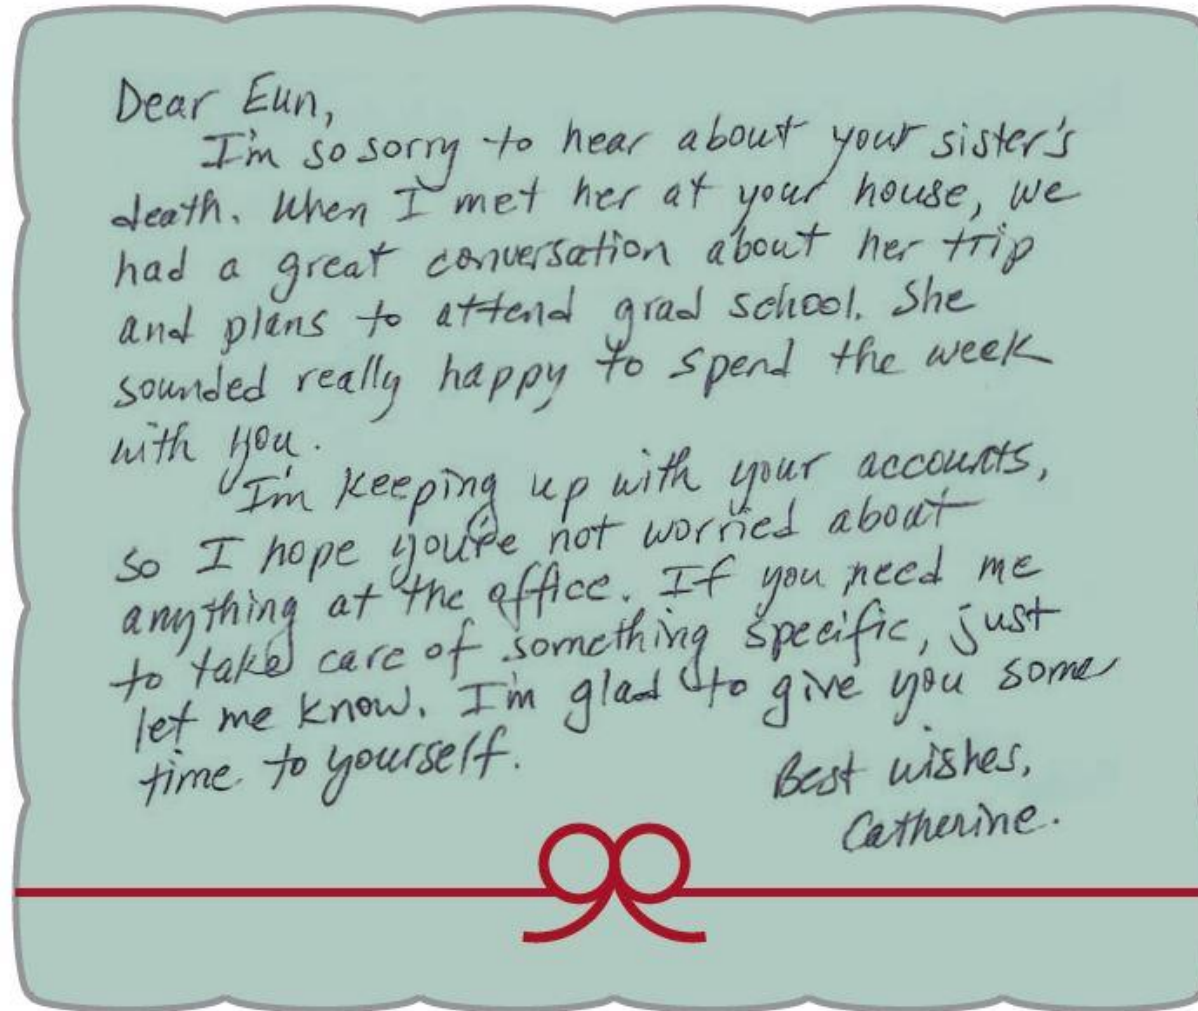 Dear Eun,
I'm so sorry to hear about your sister's
death. When I met her at your house, we
had a great conversation about her trip
and plans to attend grad school. She
sounded really happy to spend the week
with you.
I'm keeping up with your accounts,
so I hope you're not worried about
anything at the office. If you need me
to take care of something specific, just
let me know. I'm glad to give you some
time to yourself.
Best wishes,
Catherine.